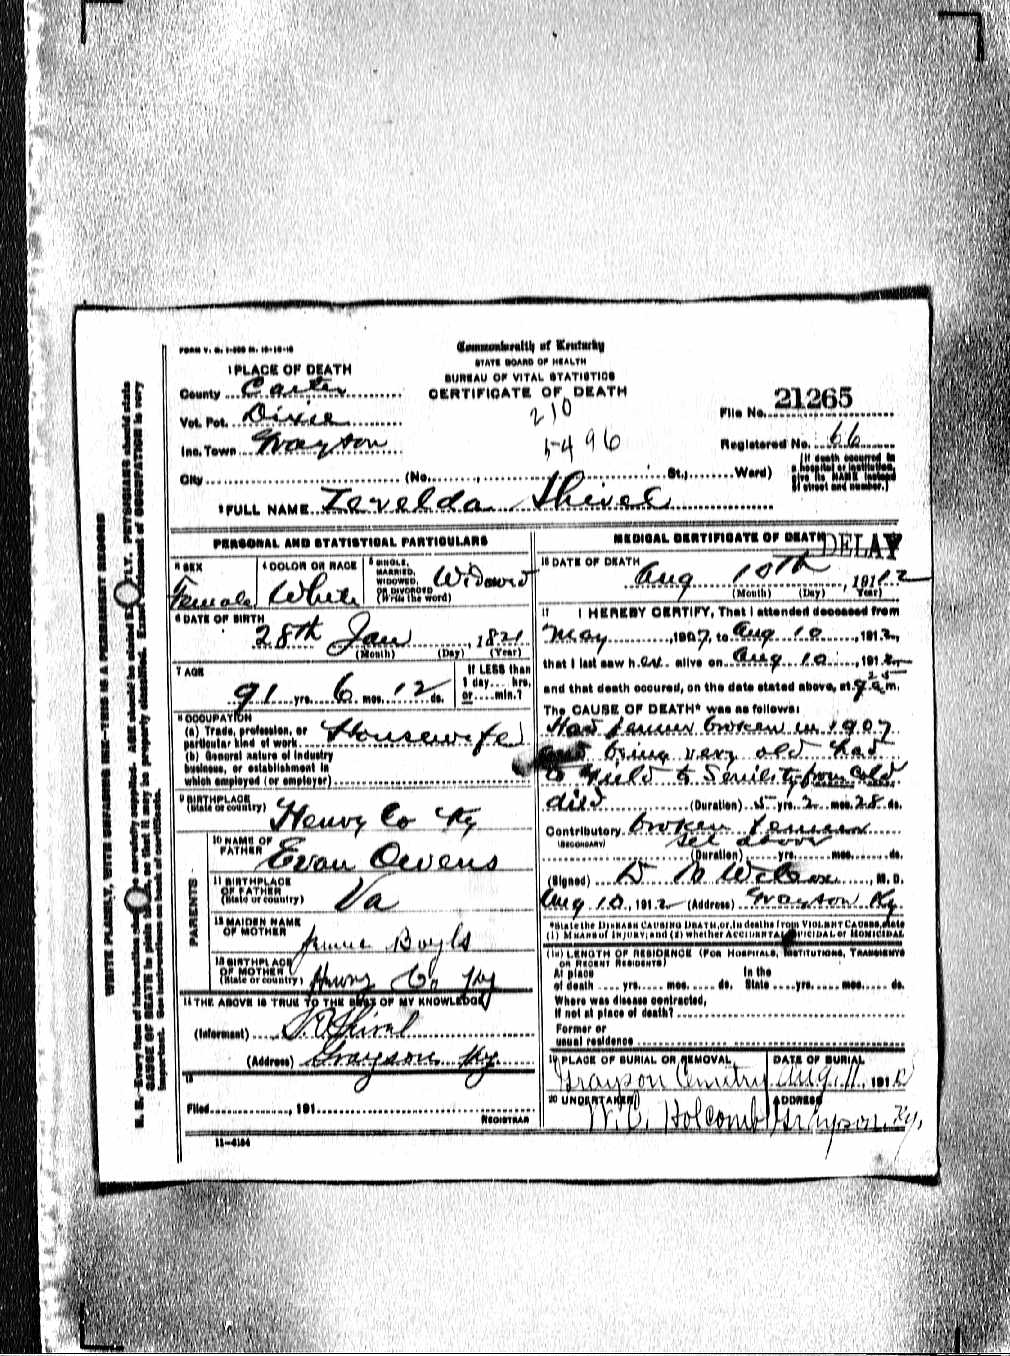 FORM V. S. 1-
Commonwealth of Kentucky
STATE BOARD OF HEALTH
BUREAU OF VITAL STATISTICS
CERTIFICATE OF DEATH
1 PLACE OF DEATH
County Carter
Vot. Pct. Dixie
Inc. Town Grayson
City (No. , St.; Ward)
210
5496
File No. 21265
Registered No. 66
(If death occurred in a hospital or institution, give its NAME instead of street and number.)
2 FULL NAME Zerelda Shivel
PERSONAL AND STATISTICAL PARTICULARS
3 SEX Female
4 COLOR OR RACE White
5 SINGLE, MARRIED, WIDOWED, OR DIVORCED (Write the word) Widowed
6 DATE OF BIRTH
28th Jan, 1821
(Month) (Day) (Year)
7 AGE
91 yrs. 6 mos. 12 ds.
If LESS than 1 day.... hrs. or....min.?
8 OCCUPATION
(a) Trade, profession, or particular kind of work Housewife
(b) General nature of industry business, or establishment in which employed (or employer)
9 BIRTHPLACE (State or country) Henry Co Ky
PARENTS
10 NAME OF FATHER Evan Owens
11 BIRTHPLACE OF FATHER (State or country) Va
12 MAIDEN NAME OF MOTHER Boyls
13 BIRTHPLACE OF MOTHER (State or country) Henry Co Ky
14 THE ABOVE IS TRUE TO THE BEST OF MY KNOWLEDGE
(Informant) Shivel
(Address) Grayson Ky
15
Filed , 191
REGISTRAR
11-4184
MEDICAL CERTIFICATE OF DEATH
DELAY
16 DATE OF DEATH
Aug 10th, 1912
(Month) (Day) Year)
17 I HEREBY CERTIFY, That I attended deceased from
May , 1907, to Aug 10 , 1912,
that I last saw her alive on Aug 10 , 1912
and that death occured, on the date stated above, at 9 25 a m.
The CAUSE OF DEATH* was as follows:
Had femur broken in 1907
being very old had
to yield to Senility from Cold
died (Duration) 5 yrs. 2 mos. 28 ds.
Contributory broken femur
(SECONDARY) see above
(Duration) yrs. mos. ds.
(Signed) Wilcox, M. D.
Aug 10, 1912 (Address) Grayson Ky
*State the DISEASE CAUSING DEATH, or, in deaths from VIOLENT CAUSES, state
(1) MEANS of INJURY; and (2) whether ACCIDENTAL, SUICIDAL or HOMICIDAL
(18) LENGTH OF RESIDENCE (FOR HOSPITALS, INSTITUTIONS, TRANSIENTS
OR RECENT RESIDENTS)
At place of death yrs. mos. ds. In the State yrs. mos. ds.
Where was disease contracted,
if not at place of death?
Former or
usual residence
19 PLACE OF BURIAL OR REMOVAL DATE OF BURIAL
Grayson Cemetry Aug. 11, 1912
20 UNDERTAKER ADDRESS
W.C. Holcomb Grayson, Ky,
WRITE PLAINLY, WITH UNFADING INK—THIS IS A PERMANENT RECORD
N. B.—Every item of information should be carefully supplied. AGE should be stated EXACTLY. PHYSICIANS should state
CAUSE OF DEATH in plain terms, so that it may be properly classified. Exact statement of OCCUPATION is very
important. See instructions on back of certificate.